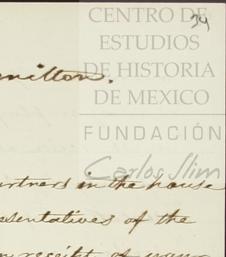 34
CENTRO DE
ESTUDIOS
DE HISTORIA
DE MEXICO
FUNDACIÓN
Carlos Slim
milton.
artners in the house
esentatives of the
receipt of your